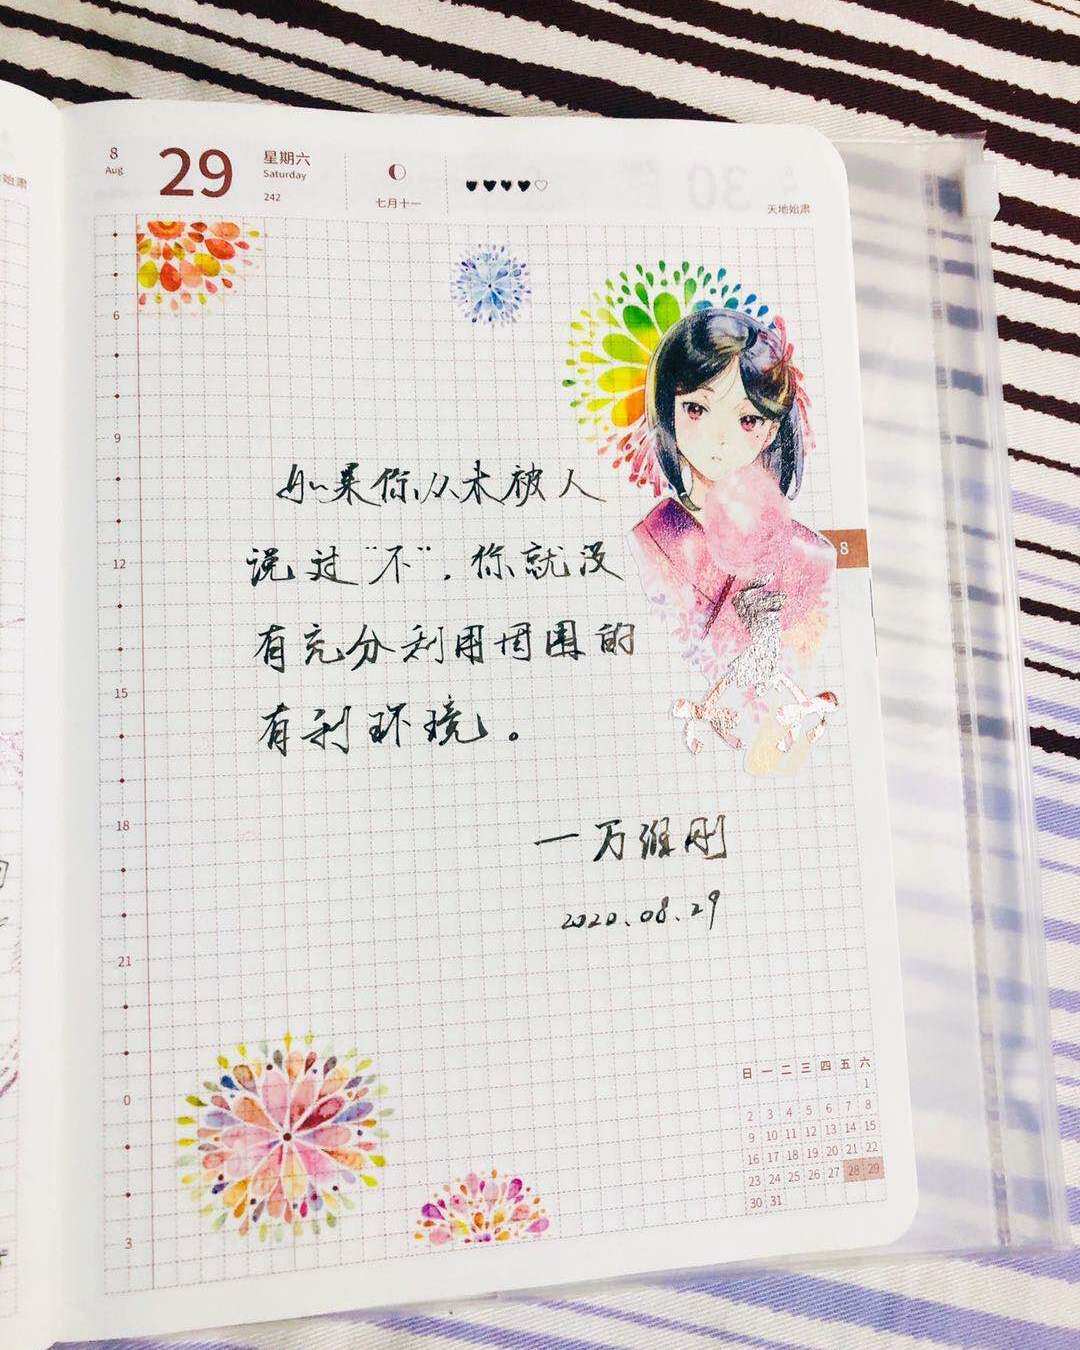 8
Aug
29
星期六
Saturday
242
七月十一
天地始肃
如果你从未被人
说过“不”，你就没
有充分利用周围的
有利环境。
一万维刚
2020.08.29
6
9
12
15
18
21
0
3
8
日 一 二 三 四 五 六
1
2 3 4 5 6 7 8
9 10 11 12 13 14 15
16 17 18 19 20 21 22
23 24 25 26 27 28 29
30 31